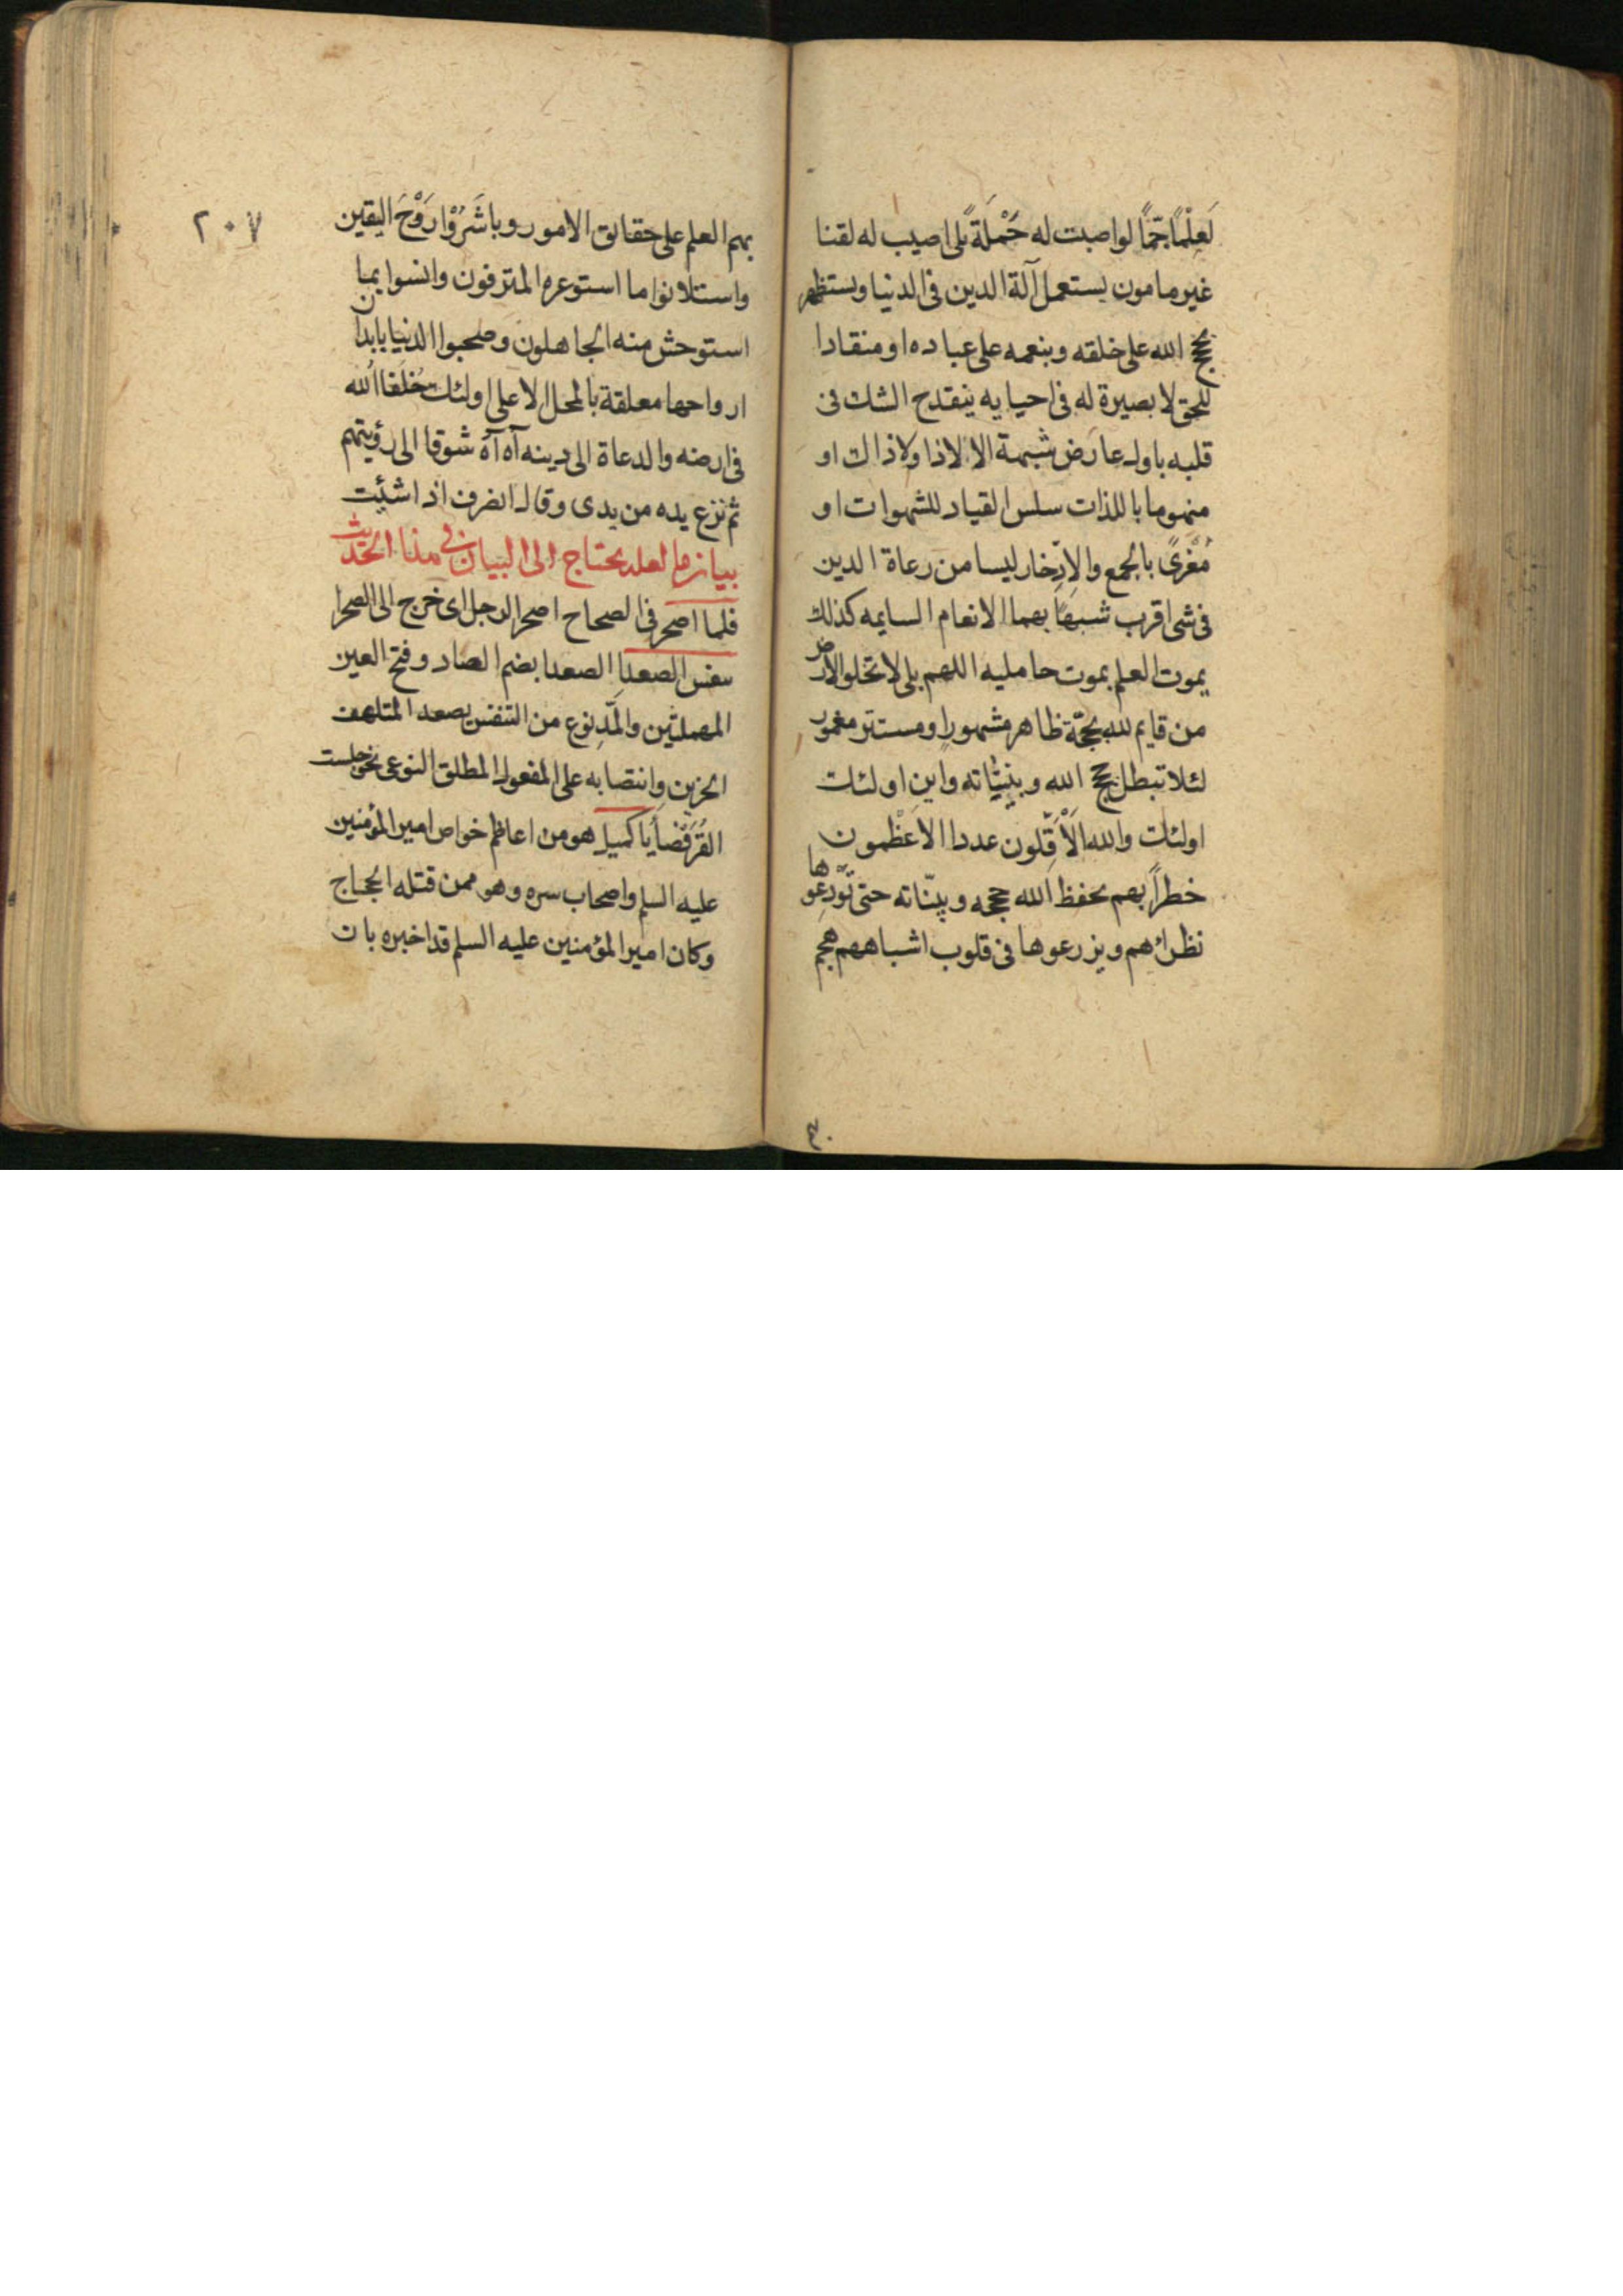 لَعِلْمًا جَمًّا لو اصبت له حَمَلَةً بلى اصيب له لقنا
غير مامون يستعمل آلة الدين فى الدنيا ويستظهر
بحجج الله على خلقه وبنعمه على عباده او منقادا
للحق لا بصيرة له فى احيايه ينقدح الشك فى
قلبه باول عارض شبهة الا لاذا ولاذاك او
منهوما باللذات سلس القياد للشهوات او
مُغْرىً بالجمع والادّخار ليسا من رعاة الدين
فى شى اقرب شبهًا بهما الانعام السايمه كذلك
يموت العلم بموت حامليه اللهم بلى لا تخلو الارض
من قايم لله بحجّة ظاهر مشهور او مستتر مغمور
لئلا تبطل حجج الله وبيّناته واين اولئك
اولئك والله الْأَقَلّون عددا الاعظمون
خطرًا بهم يحفظ الله حججه وبيّناته حتى تودعوها
نظرائهم ويزرعوها فى قلوب اشباههم هجم
٢٠٧
بهم العلم على حقائق الامور وباشَرُوْا رَوْحَ اليقين
واستلانوا ما استوعره المترفون وانسوا بما
استوحش منه الجاهلون وصحبوا الدنيا بابدان
ارواحها معلقة بالمحل الاعلى اولئك خُلفاالله
فى ارضه والدعاة الى دينه آه آه شوقا الى رؤيتهم
ثم نزع يده من يدى وقال انصرف اذا شئت
بيان ما لعله يحتاج الى البيان فى هذا الحديث
فلما اصحر فى الصحاح اصحر الرجل اى خرج الى الصحرا
تنفس الصعدا الصعدا بضم الصاد وفتح العين
المهملتين والمَدّ نوع من التنفس يصعد المتلهف
الحزين وانتصابه على المفعول المطلق النوعى نحو جلست
القُرْفُصَا يا كميل هو من اعاظم خواص امير المؤمنين
عليه السلم واصحاب سره وهو ممن قتله الحجاج
وكان امير المؤمنين عليه السلم قد اخبره بان